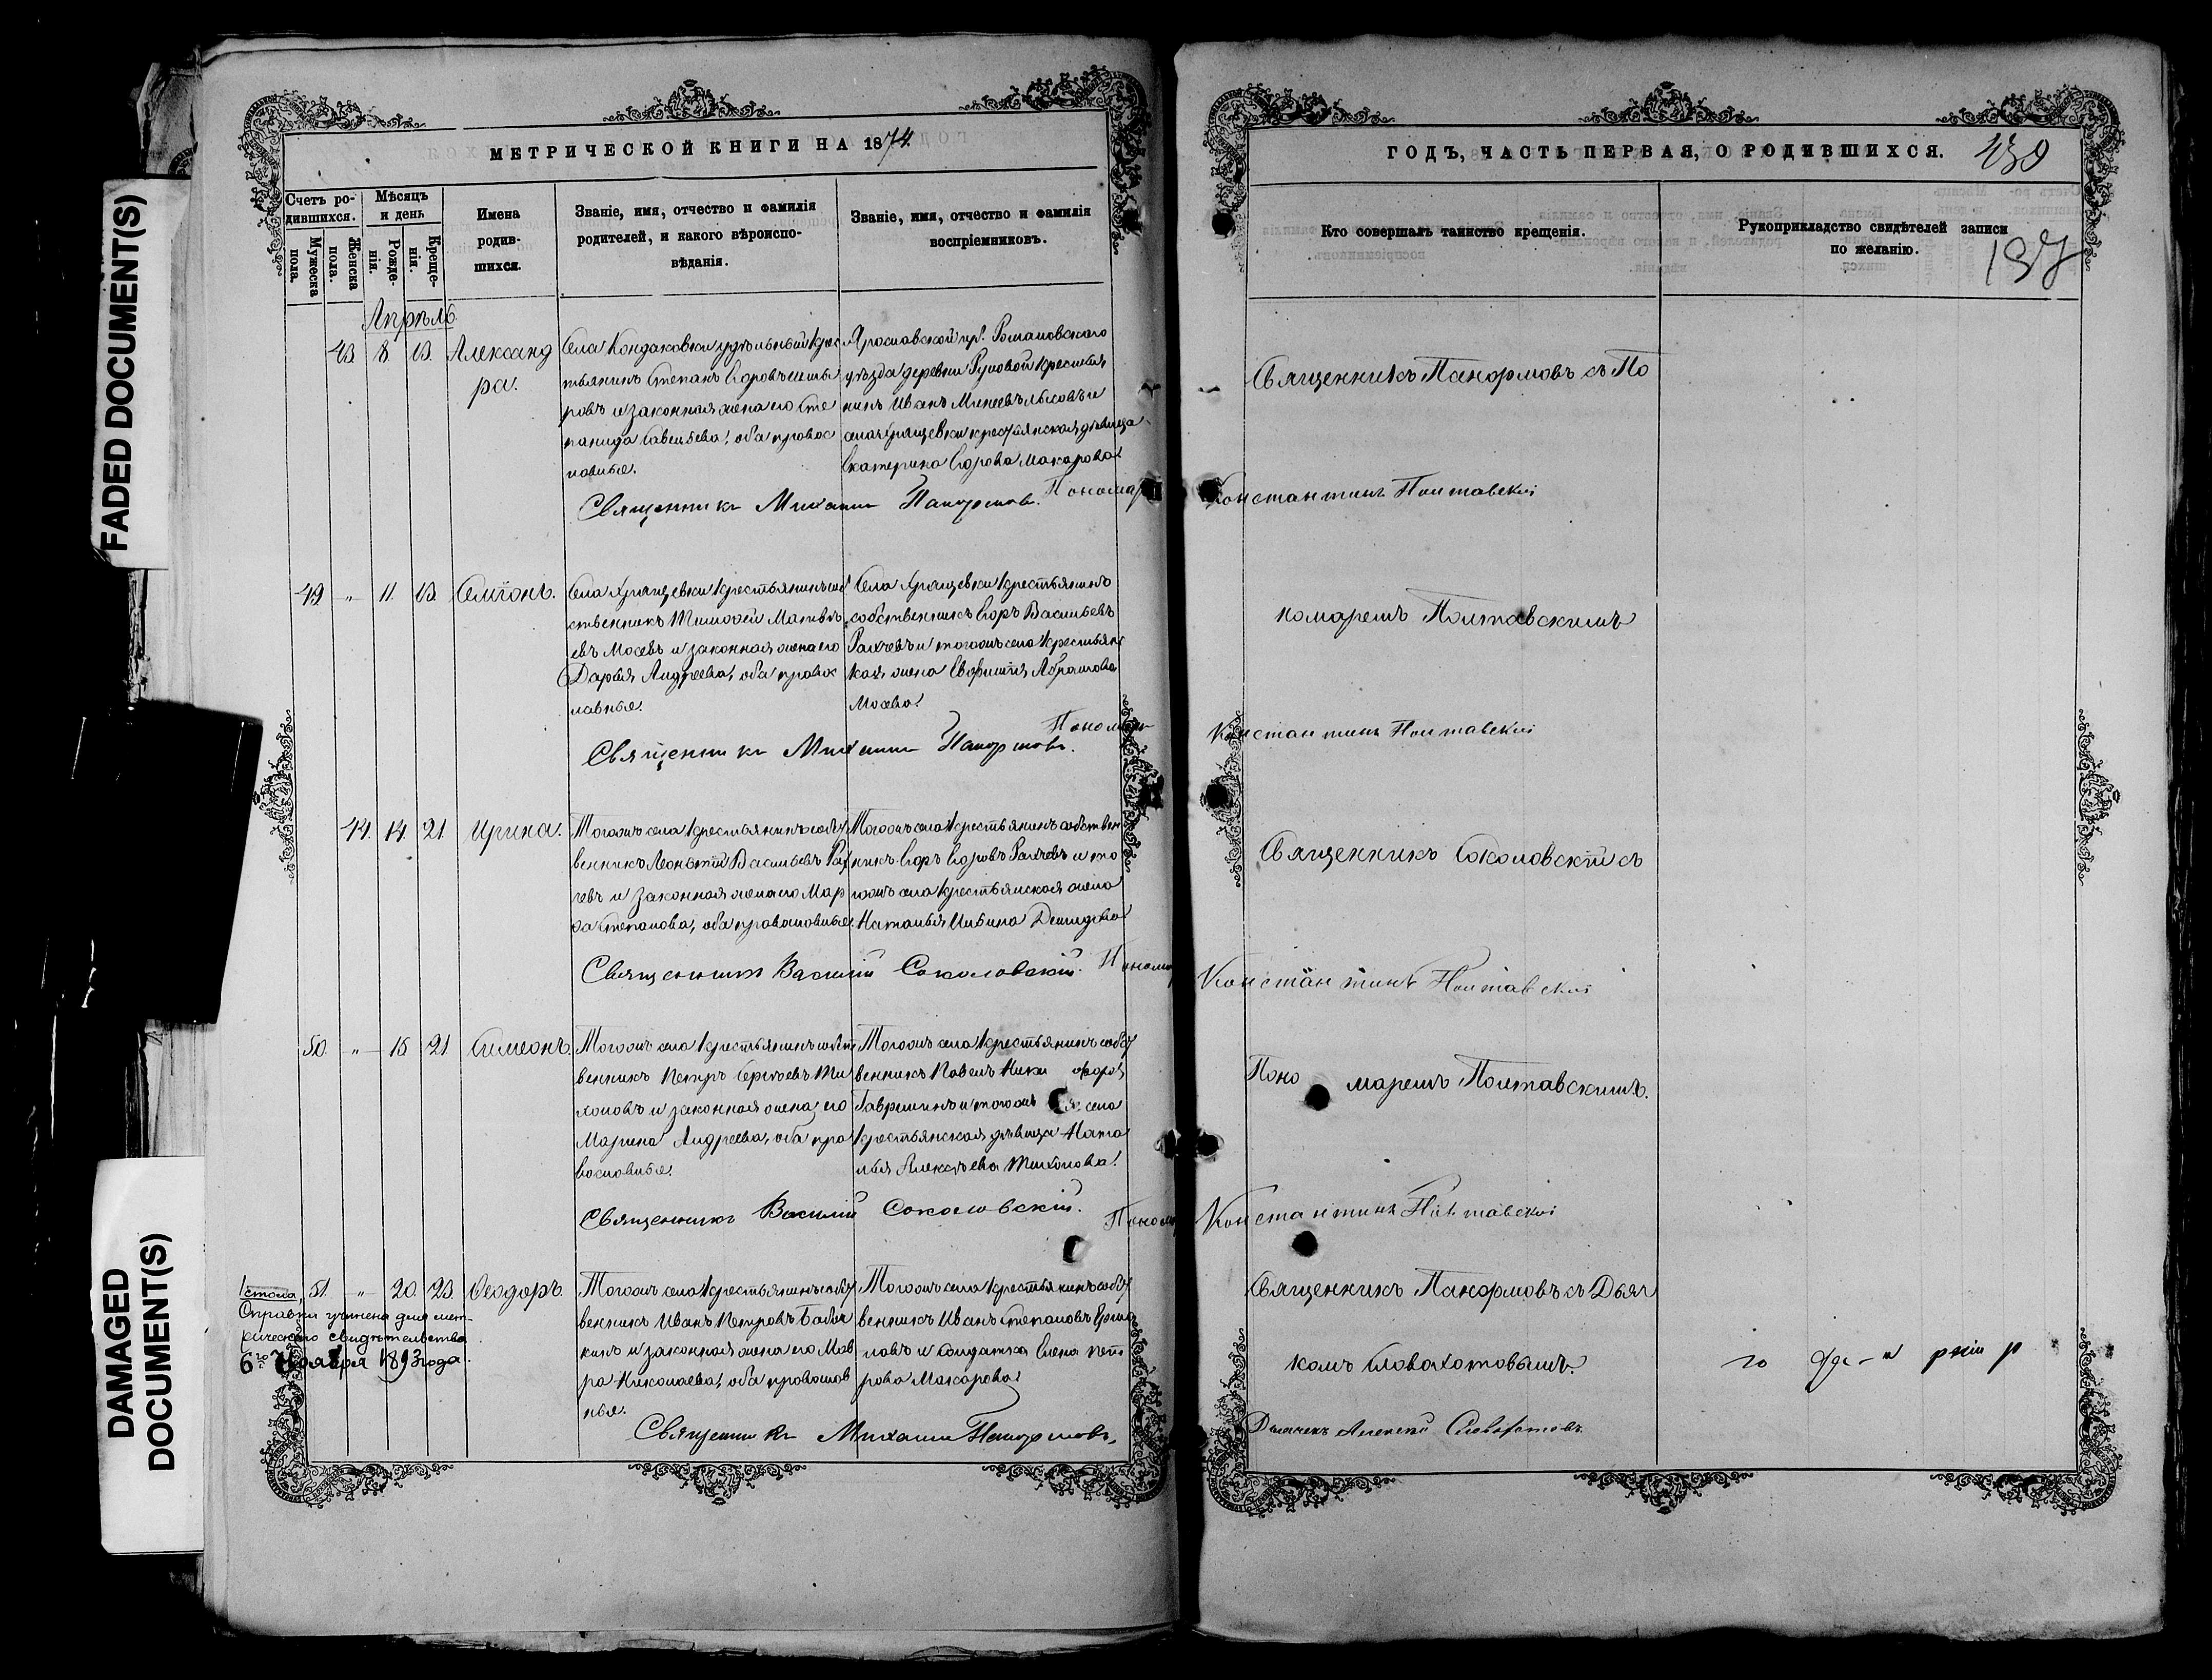 FADED DOCUMENT(S)
DAMAGED DOCUMENT(S)
МЕТРИЧЕСКОЙ КНИГИ НА 1874.
Счетъ родившихся.
Мужеска пола.
Женска пола.
Мѣсяцъ и день
Рожденія.
Крещенія.
Имена родившихся.
Званіе, имя, отчество и фамилія родителей, и какого вѣроисповѣданія.
Званіе, имя, отчество и фамилія воспріемниковъ.
Апрѣль.
43. 8. 13. Александ
ра.
Села Кондаковки удѣльный крес
тьянинъ Степанъ Егоровъ
ровъ и законная жена его Сте
панида Савельева, оба правос
лавные.
Ярославской губ. Романовскаго
уѣзда деревни крестья
нинъ Иванъ и
села Хрящевки крестьянская дѣвица
Екатерина Егорова Макарова.
Священникъ Михаилъ Панормовъ. Пономарь
49. " 11. 13. Симіонъ.
Села Хрящевки крестьянинъ соб
ственникъ Тимофей Матвѣ
евъ Мосевъ и законная жена его
Дарья Андреева, оба правос
лавные.
Села Хрящевки крестьянинъ
собственникъ Егоръ Васильевъ
Рахчевъ и тогожъ села крестьянс
кая жена Евфимія Абрамова
Мосева.
Священникъ Михаилъ Панормовъ. Пономарь
44. 14. 21. Ирина.
Тогожъ села крестьянинъ собст
венникъ Леонтій Васильевъ Рах
чевъ и законная жена его Мар
ѳа Степанова, оба православные.
Тогожъ села крестьянинъ собствен
никъ Егоръ Егоровъ Рахчевъ и то
гожъ села крестьянская жена
Наталья Демидова
Священникъ Василій Соколовскій. Пономарь
50. " 15 21 Симеонъ.
Тогожъ села крестьянинъ собст
венникъ Петръ Сергѣевъ Ти
хоновъ и законная жена его
Марина Андреева, оба пра
вославные.
Тогожъ села крестьянинъ собст
венникъ Павелъ Ники форов
Гаврилинъ и тогожъ села
крестьянская дѣвица Ната
лья Алексѣева Тихонова.
Священникъ Василій Соколовскій. Пономарь
51. " 20. 23. Ѳеодоръ.
Справка учинена для мет-
рическаго свидѣтельства
6го Ноября 1893 года.
Тогожъ села крестьянинъ собст
венникъ Иванъ Петровъ Бабуш
кинъ и законная жена его Мав
ра Николаева, оба православ
ные.
Тогожъ села крестьянинъ собст
венникъ Иванъ Степановъ Ерми
ловъ и солдатка Елена Пет
рова Макарова.
Священникъ Михаилъ Панормовъ,
ГОДЪ, ЧАСТЬ ПЕРВАЯ, О РОДИВШИХСЯ.
430
137
Кто совершалъ таинство крещенія.
Рукоприкладство свидѣтелей записи по желанію.
Священникъ Панормовъ съ По
Константинъ Полтавскій
номаремъ Полтавскимъ
Константинъ Полтавскій
Священникъ Соколовскій съ
Константинъ Полтавскій
Поно маремъ Полтавскимъ.
Константинъ Полтавскій
Священникъ Панормовъ съ Дьяч
комъ Словохотовымъ.
Дьячекъ Алексѣй Словохотовъ